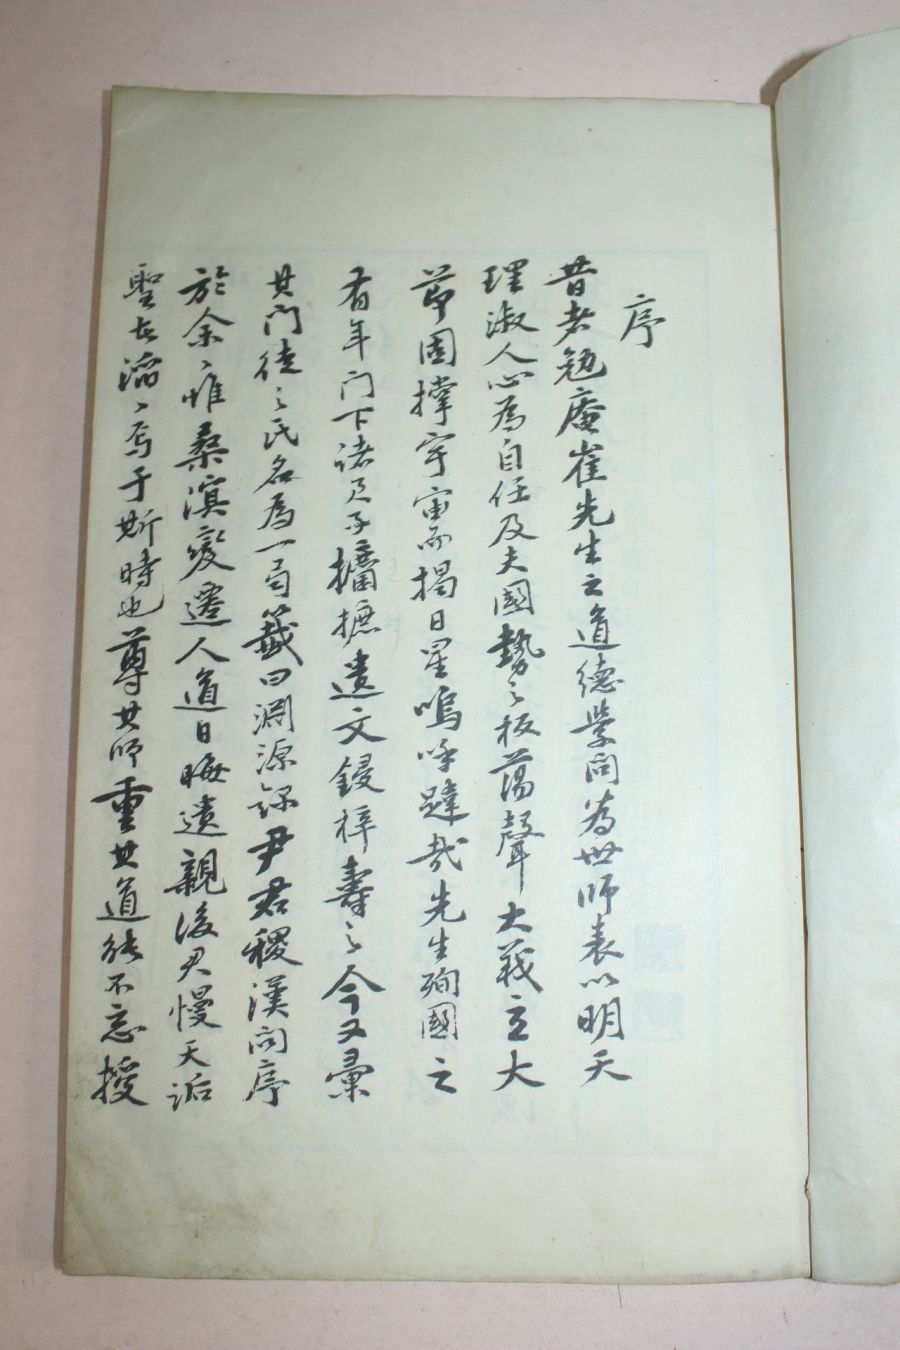 序
昔者勉庵崔先生之道德學問為世師表以明天
理淑人心為自任及夫國勢之板蕩聲大義立大
節固撑宇宙而揭日星嗚呼韙哉先生殉國之
有年門下諸君子攟摭遺文鋟梓壽之今又彙
其門徒之氏名為一局籤曰淵源錄尹君稷漢問序
於余余惟桑溟變遷人道日晦遺親後君慢天詬
聖古滔滔焉于斯時也尊其師重其道能不忘授